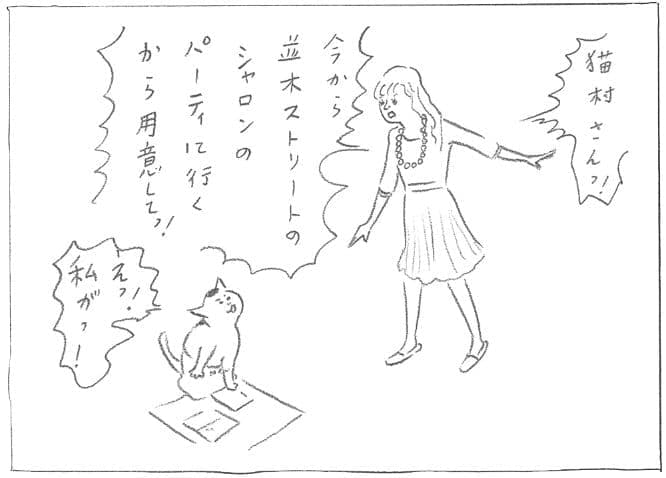 猫村さんっ!
今から
並木ストリートの
シャロンの
パーティに行く
から用意してっ!
えっ!
私がっ!